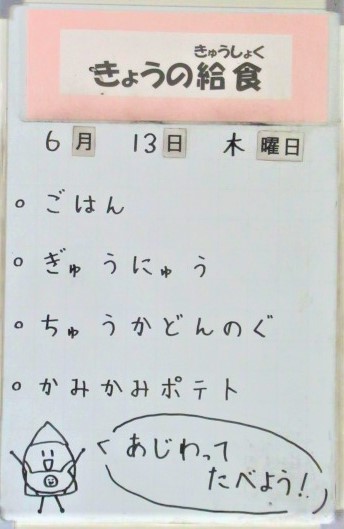 きゅうしょく
きょうの給食
6月 13日 木曜日
ごはん
ぎゅうにゅう
ちゅうかどんのぐ
かみかみポテト
あじわって
たべよう!